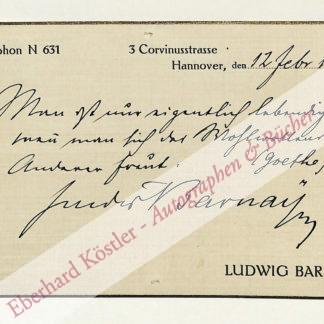 phon N 631
3 Corvinusstrasse
Hannover, den 12 Febr 1
Man ist nur eigentlich lebendig
wenn man sich des Wohlwollens
Anderer freut. (Goethe)
Barnay
LUDWIG BAR
Eberhard Köstler - Autographen & Bücher